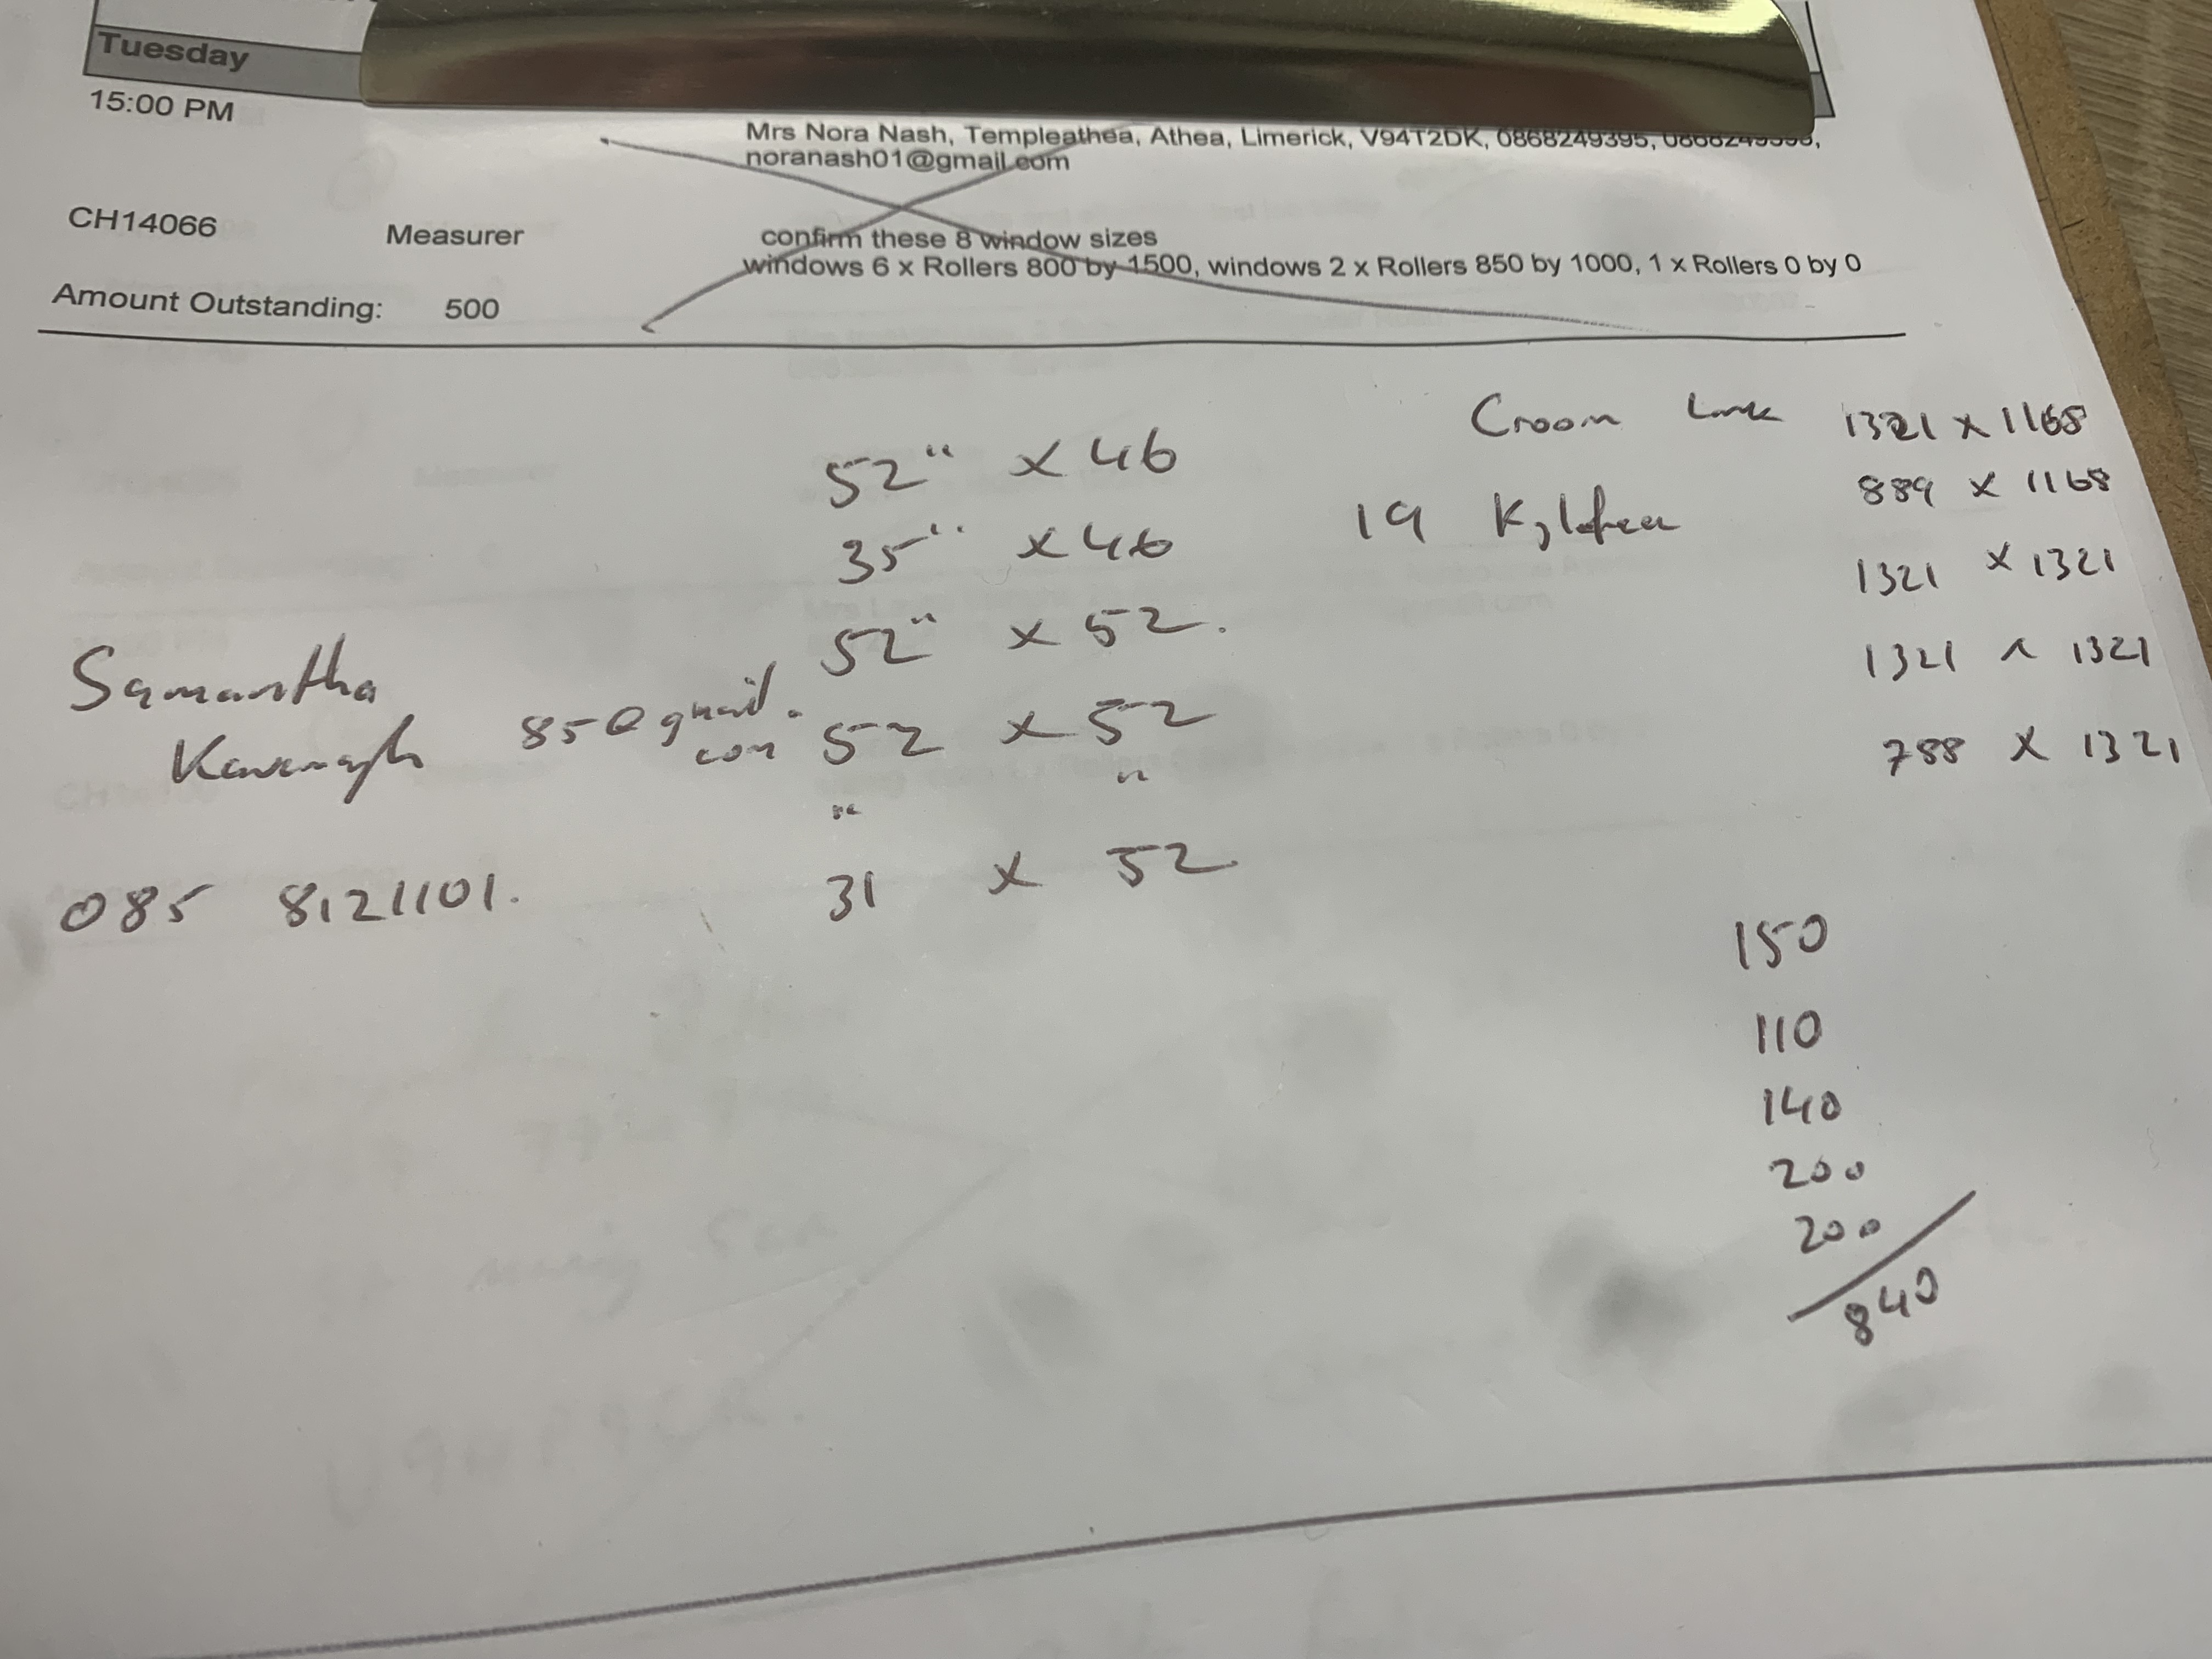 Tuesday
15:00 PM
Mrs Nora Nash, Templeathea, Athea, Limerick, V94T2DK, 0868249395, 0868249395,
noranash01@gmail.com
CH14066 Measurer confirm these 8 window sizes
windows 6 x Rollers 800 by 1500, windows 2 x Rollers 850 by 1000, 1 x Rollers 0 by 0
Amount Outstanding: 500
Croom 1321 x 1168
52" x 46
889 x 1168
35" x 46
19
1321 x 1321
52" x 52.
1321 x 1321
Samantha
Kavanagh 85@gmail.
com
52 x 52
788 x 1321
" "
31 x 52
085 8121101.
150
110
140
200
200
840